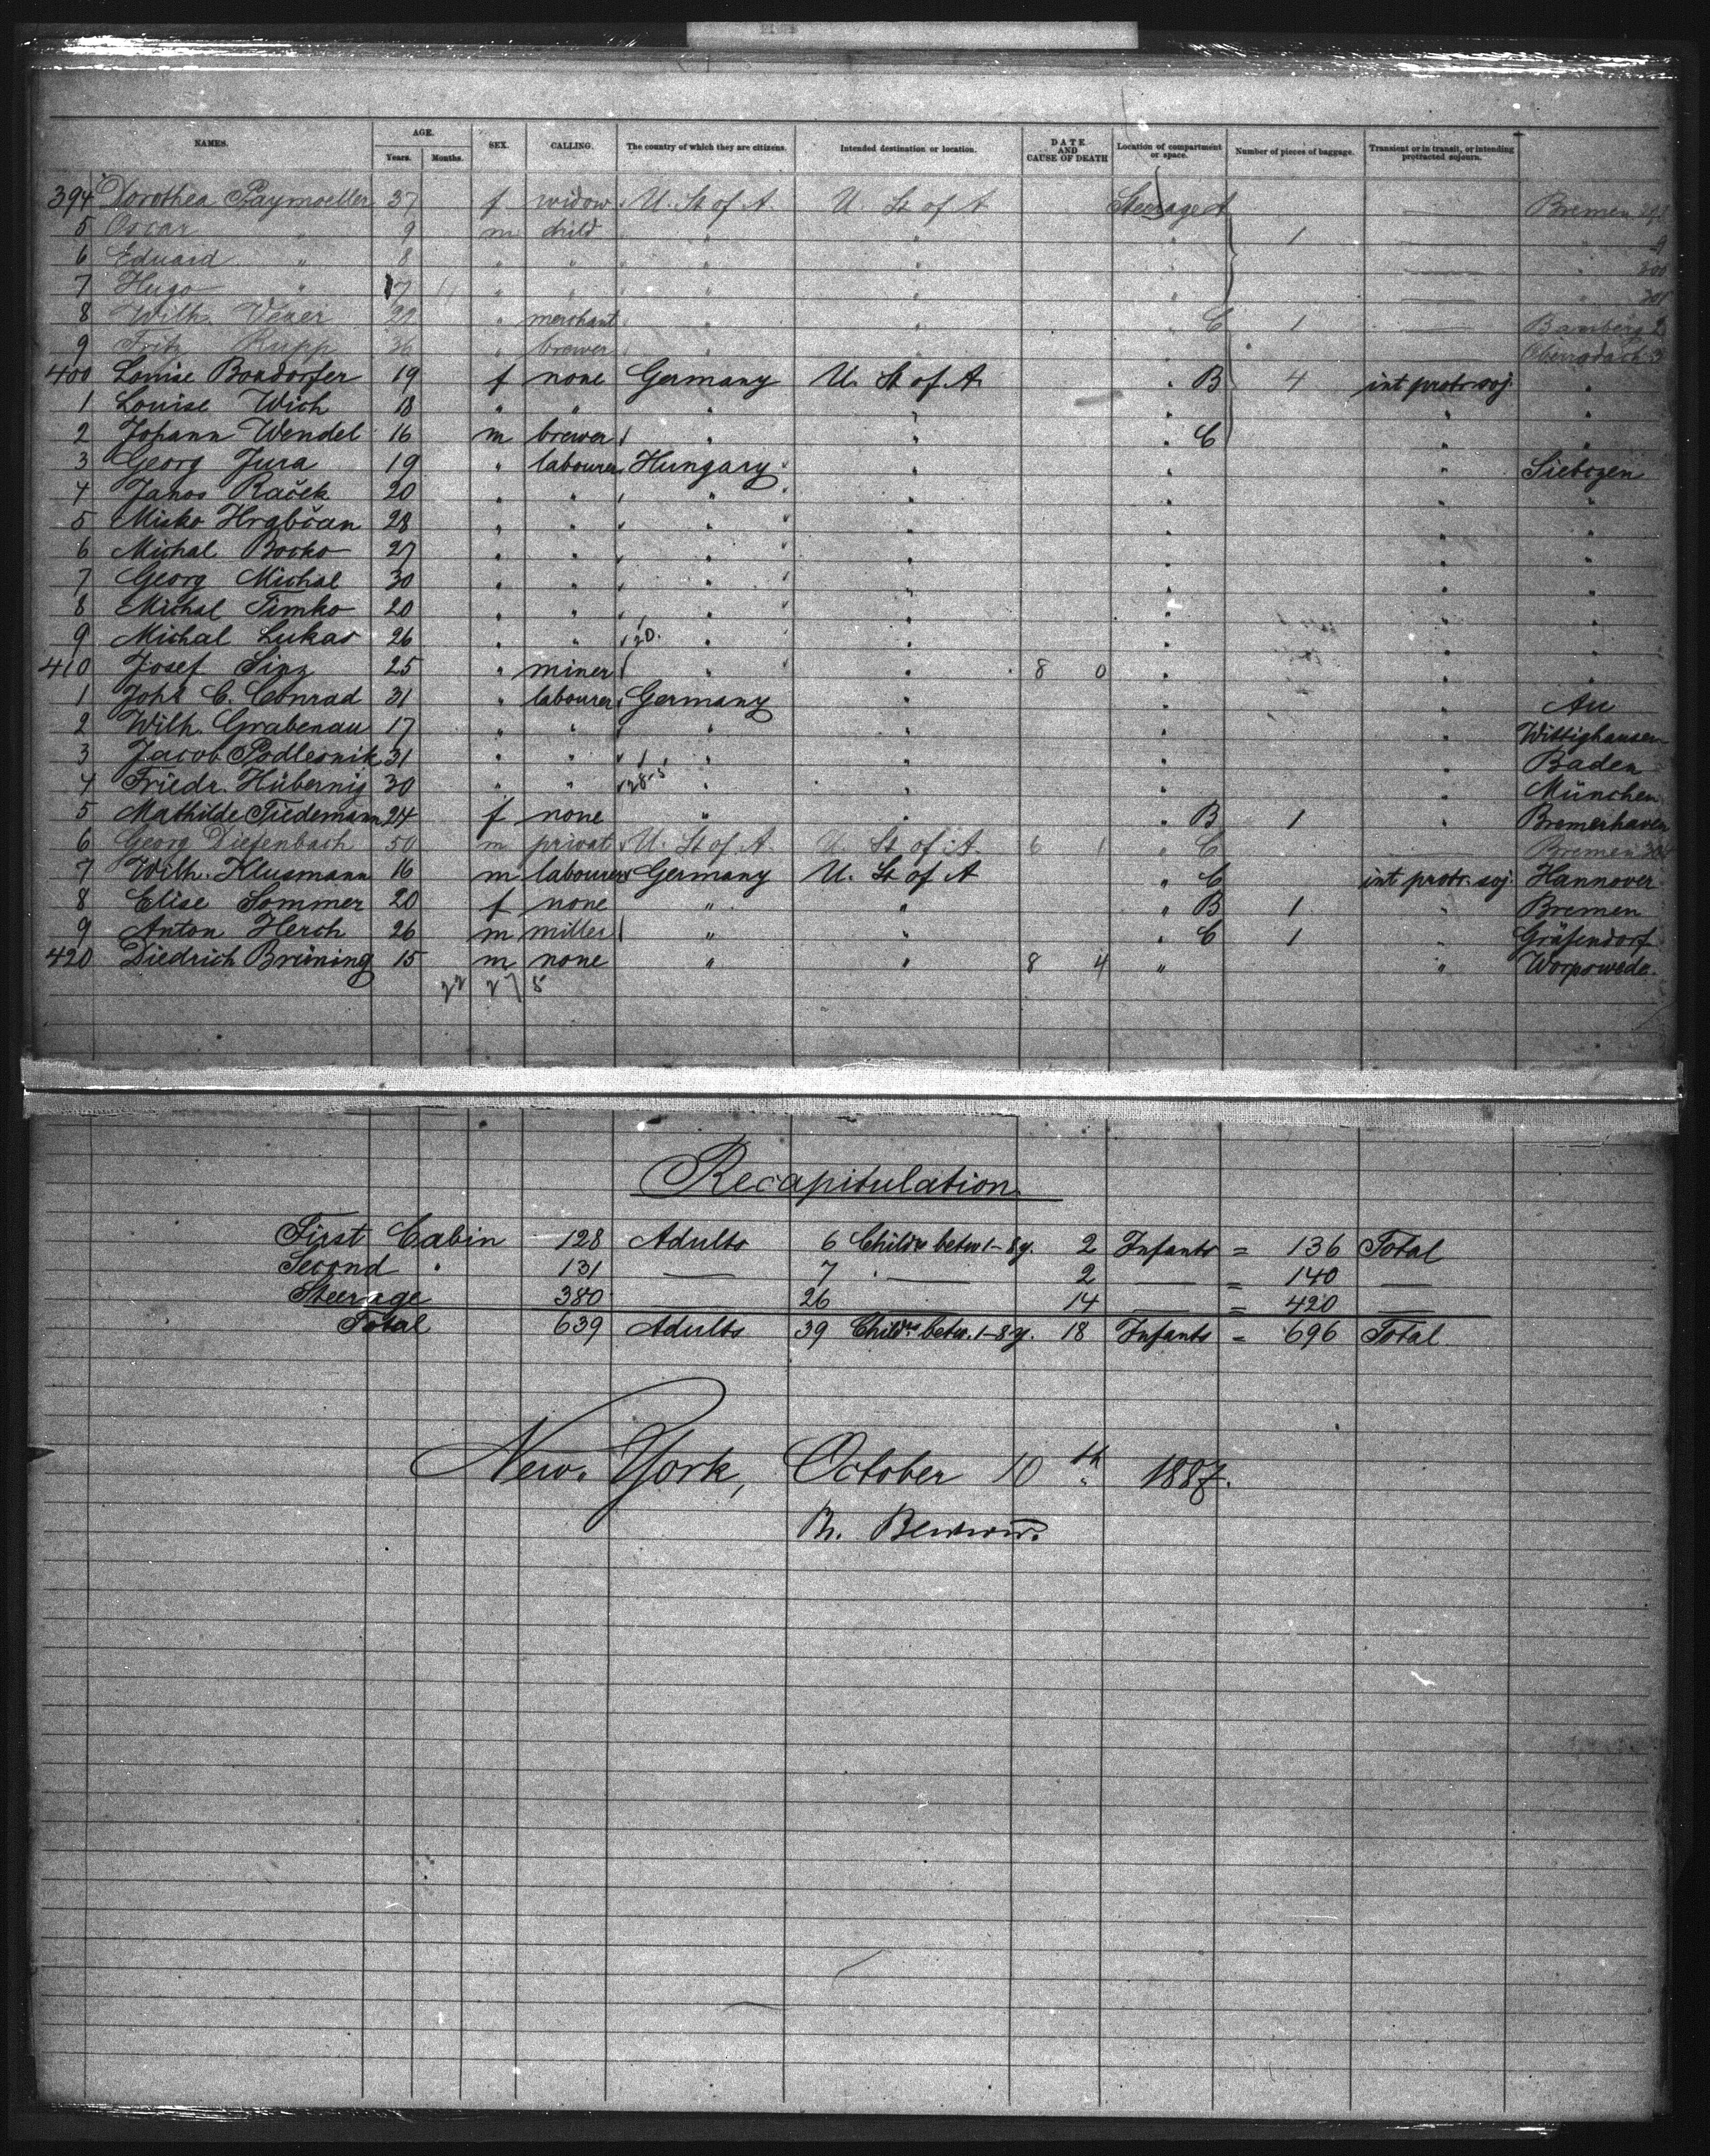 NAMES. AGE. Years. Months. SEX. CALLING. The country of which they are citizens. Intended destination or location. DATE AND CAUSE OF DEATH Location of compartment or space. Number of pieces of baggage. Transient or in transit, or intending protracted sojourn.
394 Dorothea Paymoeller 37 f widow U. St of A. U. St of A Steerage A Bremen
5 Oscar " 9 m child " " " 1 "
6 Eduard " 8 " " " " " "
7 Hugo " 7 " " " " " "
8 Wilh. 22 " merchant " " C 1 Bamberg
9 Fritz Rupp 36 " brewer " " "
400 Louise Bondorfer 19 f none Germany U. St of A. " B 4 int protr. soj. "
1 Louise Wich 18 " " " " " " "
2 Johann Wendel 16 m brewer " " " C " "
3 Georg Jura 19 " labourer Hungary " " " Siebozen
4 Janos Raček 20 " " " " " " "
5 Misko Hrabčan 28 " " " " " " "
6 Michal Bocko 27 " " " " " " "
7 Georg Michal 30 " " " " " " "
8 Michal Timko 20 " " " " " " "
9 Michal Lukas 26 " " 20. " " " " "
410 Josef Sinz 25 " miner " " 8 0 " " "
1 Johs C. Conrad 31 " labourer Germany " " " Au
2 Wilh. Grabenau 17 " " " " " " Wittighausen
3 Jacob Podlesnik 31 " " " " " " Baden
4 Friedr. Hübernig 30 " " 28-5 " " " " München
5 Mathilde Tiedemann 24 f none " " " B 1 " Bremerhaven
6 Georg Diefenbach 50 m privat U. St of A. U. St of A. 6 1 " C Bremen
7 Wilh. Klusmann 16 m labourer Germany U. St of A " C int protr. soj. Hannover
8 Elise Sommer 20 f none " " " B 1 " Bremen
9 Anton Herch 26 m miller " " " C 1 " Gräfendorf
420 Diedrich Brüning 15 m none " " 8 4 " " Worpswede.
22 27 5
Recapitulation.
First Cabin 128 Adults 6 Childr betw 1-8 y. 2 Infants = 136 Total
Second " 131 — 7 " — 2 — = 140 —
Steerage 380 — 26 — 14 — = 420 —
Total 639 Adults 39 Childrn betw. 1-8 y. 18 Infants = 696 Total
New York, October 10th 1887.